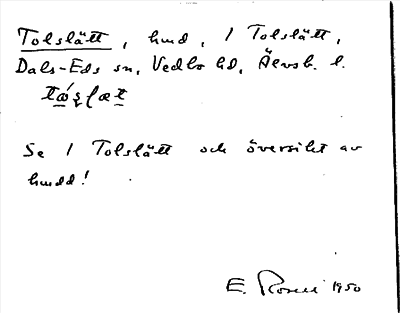 Tolslätt, hmd, 1 Tolslätt,
Dals-Eds sn, Vedbo hd, Älvsb. l.
Se 1 Tolslätt och översikt av
hmdd!
E. 1950